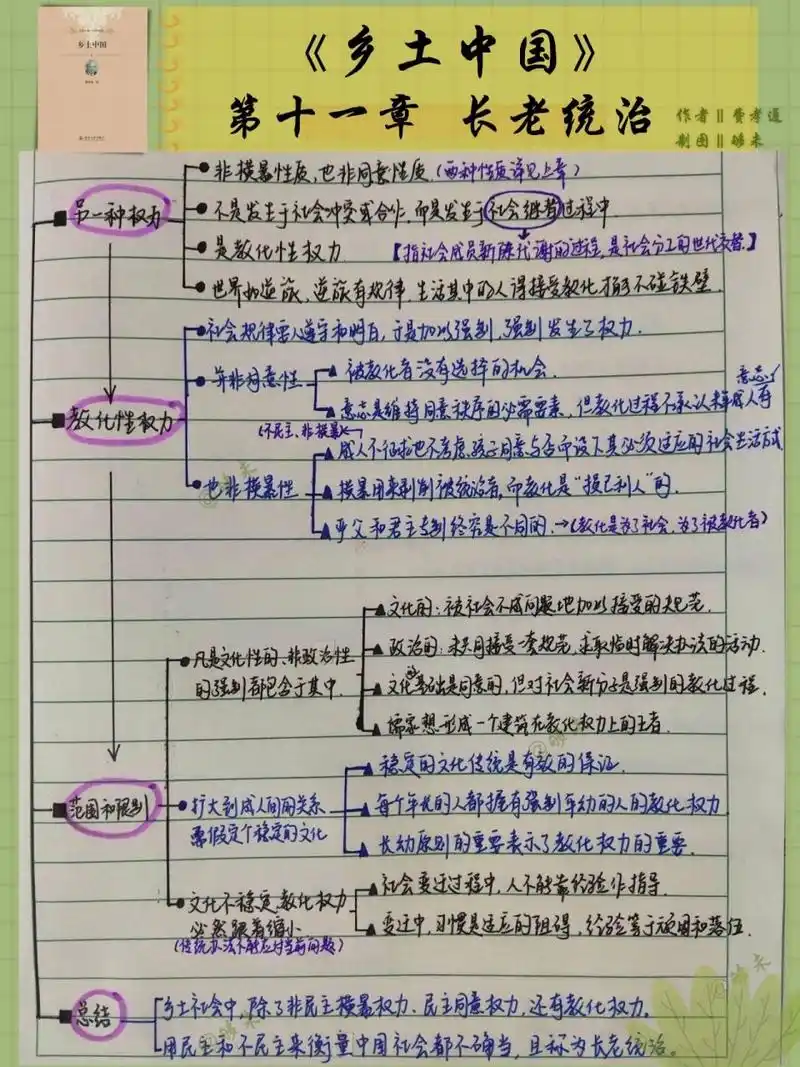 乡土中国
《乡土中国》
第十一章 长老统治
作者 || 费孝通
制图 || 晞未
另一种权力
非横暴性质,也非同意性质(两种性质详见上章)
不是发生于社会冲突或合作,而是发生于社会继替过程中.
是教化性权力 【指社会成员新陈代谢的过程,是社会分工的世代交替.】
世界如逆旅,逆旅有规律,生活其中的人得接受教化才可不碰铁壁.
教化性权力
社会规律需人遵守和明白,于是加以强制,强制发生了权力.
并非同意性
被教化者没有选择的机会.
意志是维持同意秩序的必需要素,但教化过程不承认未成年人有意志
(不民主、非横暴)
也非横暴性
成人不征求也不考虑孩子同意与否而设下其必须适应的社会生活方式
横暴用来剥削被统治者,而教化是“损己利人”的.
严父和君主专制终究是不同的.→(教化是为了社会,为了被教化者)
范围和限制
凡是文化性的、非政治性
的强制都包含于其中.
文化的:被社会不成问题地加以接受的规范.
政治的:未共同接受一套规范,求取临时解决办法的活动.
文化的基础是同意的,但对社会新分子是强制的教化过程.
儒家想形成一个建筑在教化权力上的王者.
扩大到成人间的关系
需假定个稳定的文化
稳定的文化传统是有效的保证.
每个年长的人都握有强制年幼的人的教化权力
长幼原则的重要表示了教化权力的重要.
文化不稳定,教化权力
必然跟着缩小
(传统办法不能应付当前问题)
社会变迁过程中,人不能靠经验作指导.
变迁中,习惯是适应的阻碍,经验等于顽固和落伍.
总结
乡土社会中,除了非民主横暴权力、民主同意权力,还有教化权力。
用民主和不民主来衡量中国社会都不确当,且称为长老统治。